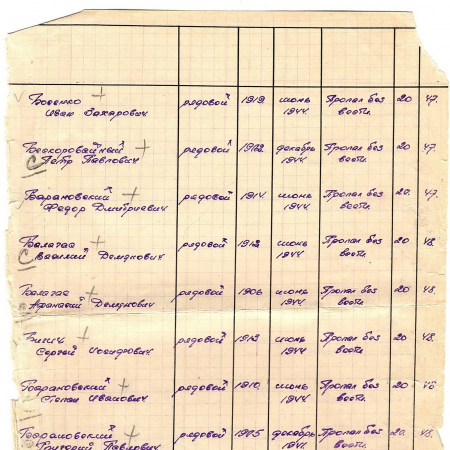 Босенко рядовой 1919. июнь Пропал без 20 47.
Иван Захарович 1944. вести.
Бескоровайный рядовой декабрь Пропал без 20 47
Петр Павлович 1944. вести.
Барановский рядовой 1914. июнь Пропал без 20. 47.
Федор Дмитриевич 1944. вести.
рядовой 1912 июнь Пропал без 20 48
Василий Демянович 1944. вести.
рядовой 1906 июнь Пропал без 20 48.
Афанасий Демянович 1944. вести.
рядовой 1913 июнь Пропал без 20 48.
Сергей Иосифович 1944 вести
Барановский рядовой 1910. июнь Пропал без 20 48
Степан Иванович 1944. вести.
Барановский рядовой декабрь Пропал без 20. 48.
Григорий Павлович 1944. вести.